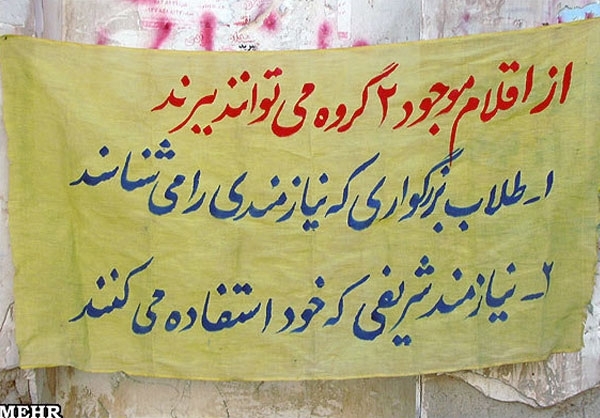 از اقلام موجود ۲ گروه می توانند ببرند
۱ـ طلاب بزرگواری که نیازمندی را می شناسند
۲ـ نیازمند شریفی که خود استفاده می کنند
MEHR